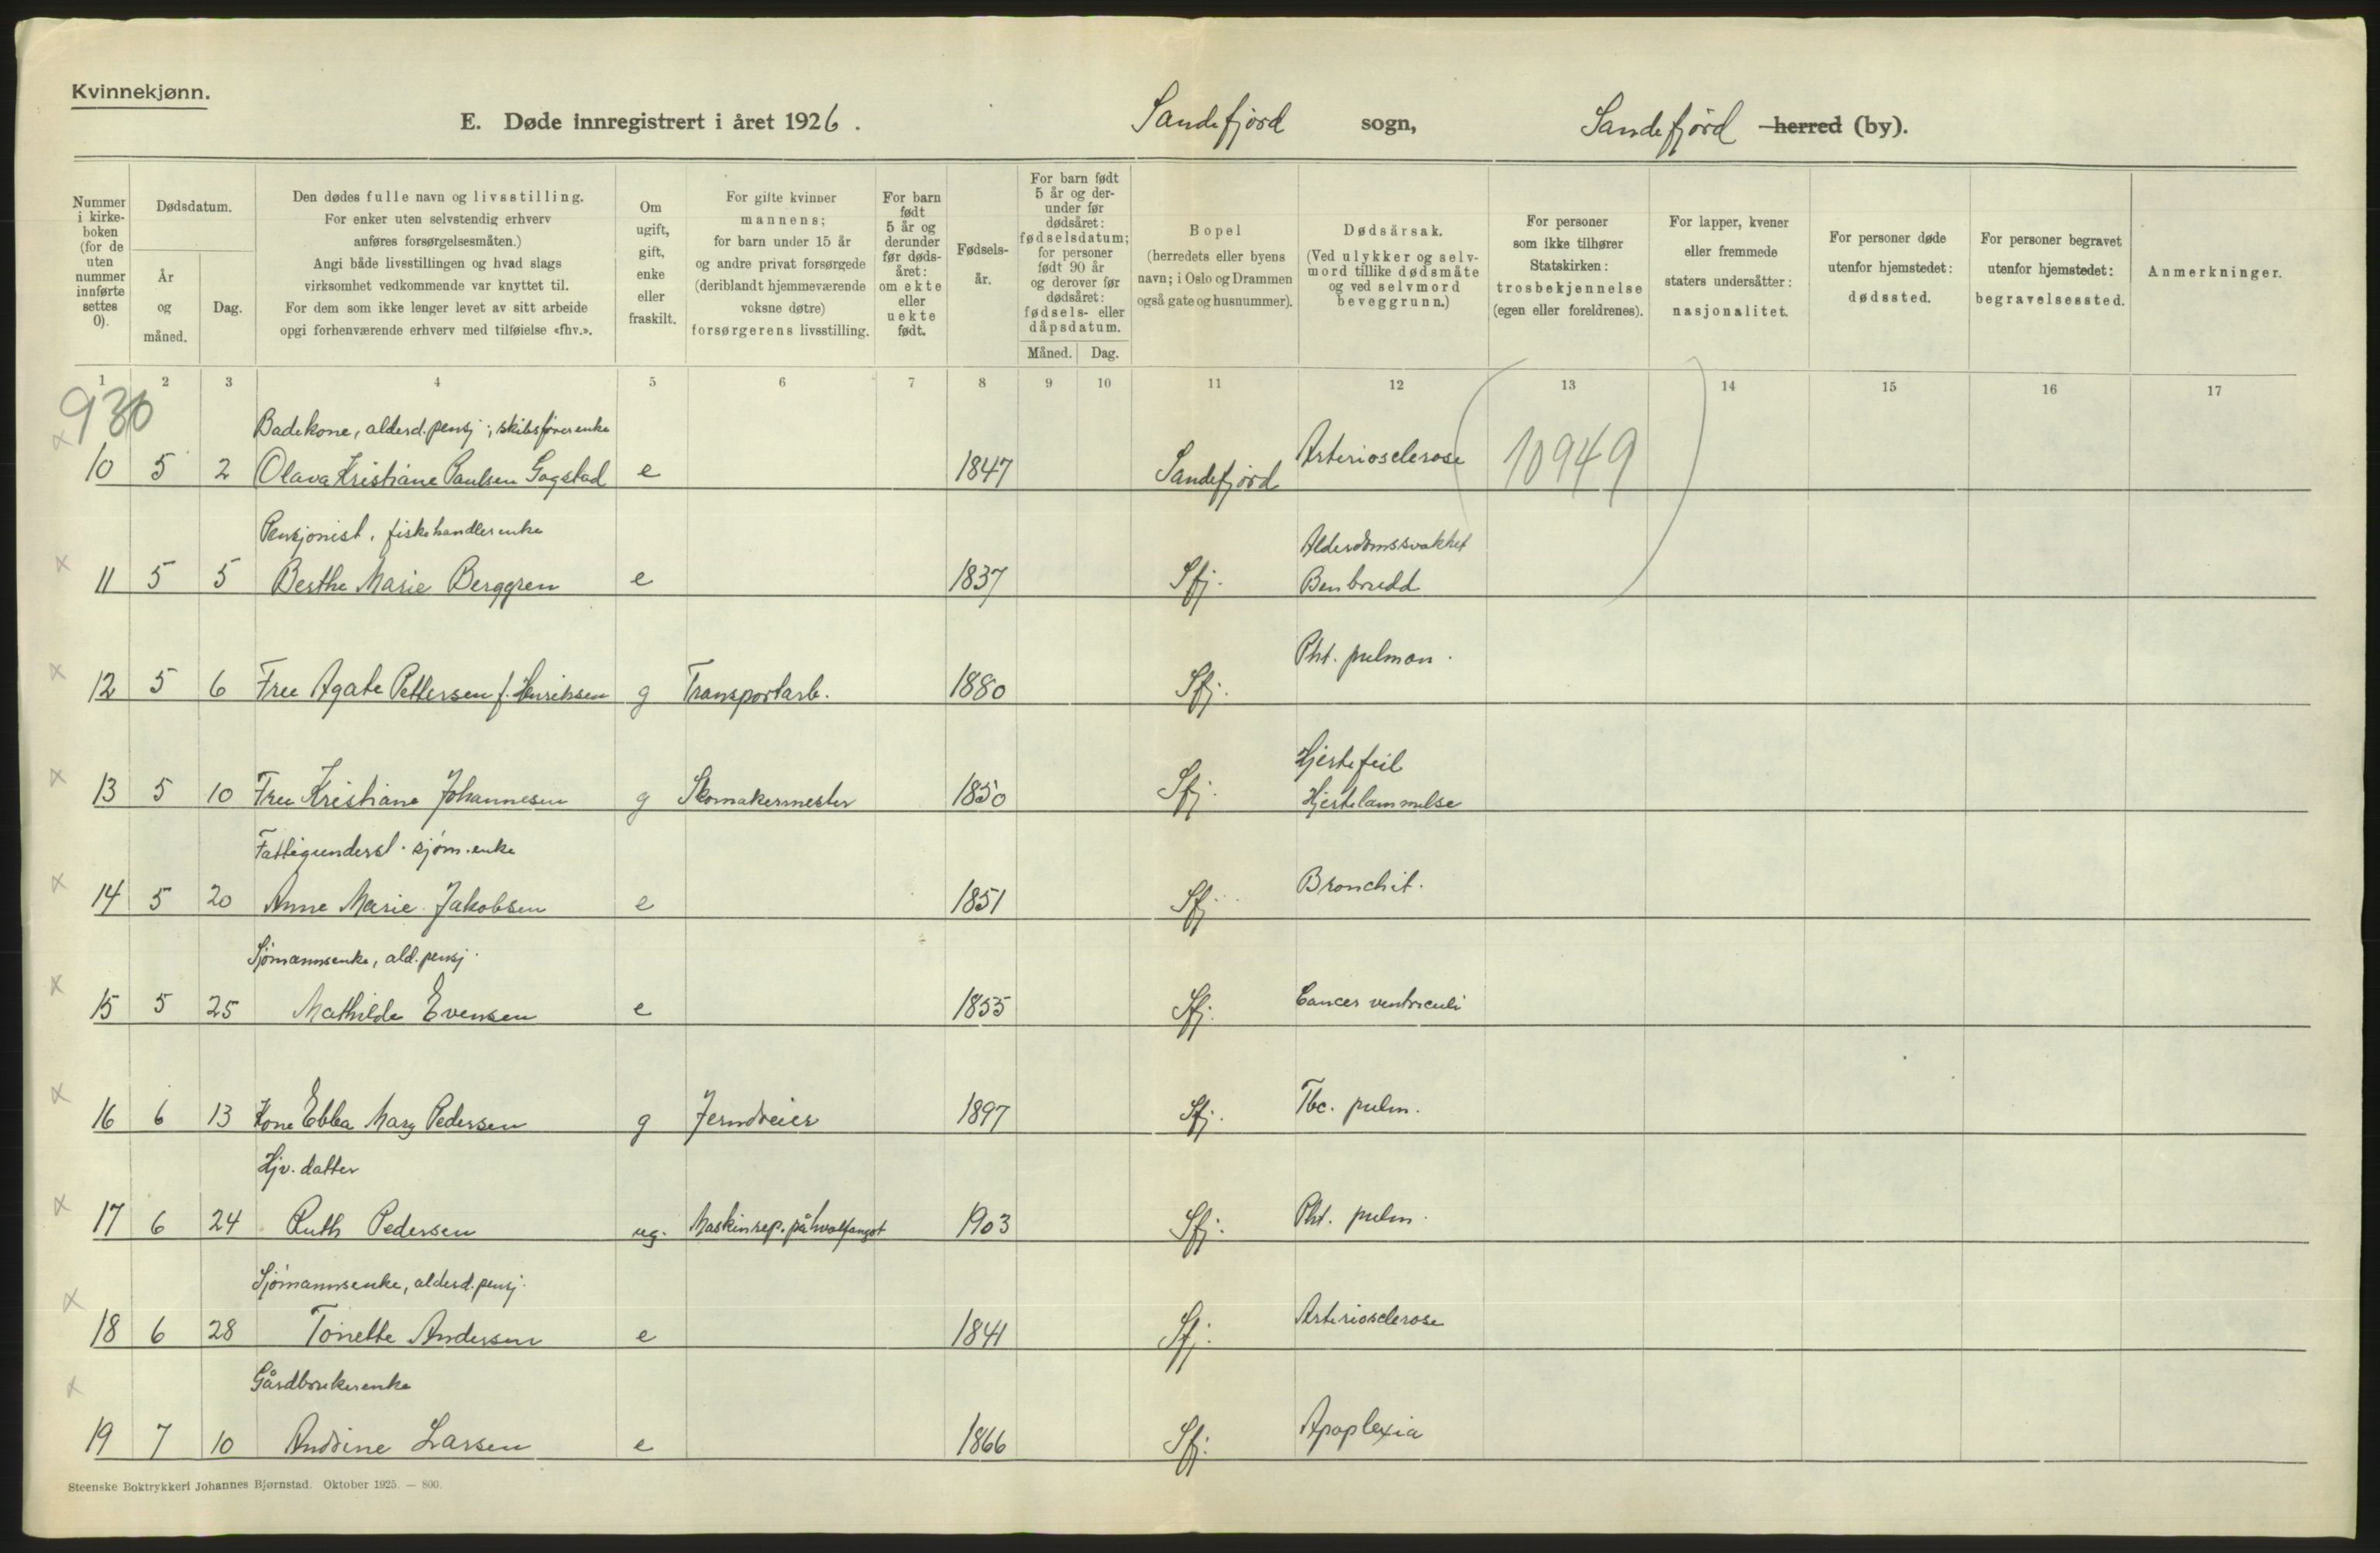 Kvinnekjønn.
E. Døde innregistrert i året 1926. Sandefjord sogn, Sandefjord herred (by).
Nummer i kirkeboken (for de uten nummer innførte settes 0).
Dødsdatum.
År og måned.
Dag.
Den dødes fulle navn og livsstilling.
For enker uten selvstendig erhverv
anføres forsørgelsesmåten.)
Angi både livsstillingen og hvad slags
virksomhet vedkommende var knyttet til.
For dem som ikke lenger levet av sitt arbeide
opgi forhenværende erhverv med tilføielse «fhv.».
Om ugift, gift, enke eller fraskilt.
For gifte kvinner
mannens;
for barn under 15 år
og andre privat forsørgede
(deriblandt hjemmeværende
voksne døtre)
forsørgerens livsstilling.
For barn født 5 år og derunder før dødsåret: om ekte eller uekte født.
Fødselsår.
For barn født 5 år og derunder før dødsåret: fødselsdatum; for personer født 90 år og derover før dødsåret: fødsels- eller dåpsdatum.
Måned. Dag.
Bopel
(herredets eller byens
navn; i Oslo og Drammen
også gate og husnummer).
Dødsårsak.
(Ved ulykker og selvmord tillike dødsmåte og ved selvmord beveggrunn.)
For personer
som ikke tilhører
Statskirken:
trosbekjennelse
(egen eller foreldrenes).
For lapper, kvener
eller fremmede
staters undersåtter:
nasjonalitet.
For personer døde
utenfor hjemstedet:
dødssted.
For personer begravet
utenfor hjemstedet:
begravelsessted.
Anmerkninger.
1 2 3 4 5 6 7 8 9 10 11 12 13 14 15 16 17
930
Badekone, alderd.pensj; skibsførerenke
10 5 2 Olava Kristiane Paulsen Gogstad e 1847 Sandefjord Arteriosclerose (10949)
Pensjonist, fiskehandlerenke
Alderdomssvakhet
11 5 5 Berthe Marie Berggren e 1837 Sfj. Benbrudd
Pht. pulmon.
12 5 6 Fru Agate Pettersen f. Henriksen g Transportarb. 1880 Sfj.
Hjertefeil
13 5 10 Fru Kristiane Johannesen g Skomakermester 1850 Sfj. Hjertelammelse
Fattigunderst. sjøm.enke
14 5 20 Anne Marie Jakobsen e 1851 Sfj. Bronchit.
Sjømannsenke, ald.pensj.
15 5 25 Mathilde Evensen e 1855 Sfj. Cancer ventriculi
16 6 13 Kone Ebba Mary Pedersen g Jerndreier 1897 Sfj. Tbc. pulm.
Hjv. datter
17 6 24 Ruth Pedersen ug. Maskinrep. på hvalfangst 1903 Sfj. Pht. pulm.
Sjømannsenke, alderd.pensj.
18 6 28 Tonette Andersen e 1841 Sfj. Arteriosclerose
Gårdbrukerenke
19 7 10 Andrine Larsen e 1866 Sfj. Apoplexia
Steenske Boktrykkeri Johannes Bjørnstad. Oktober 1925. — 800.